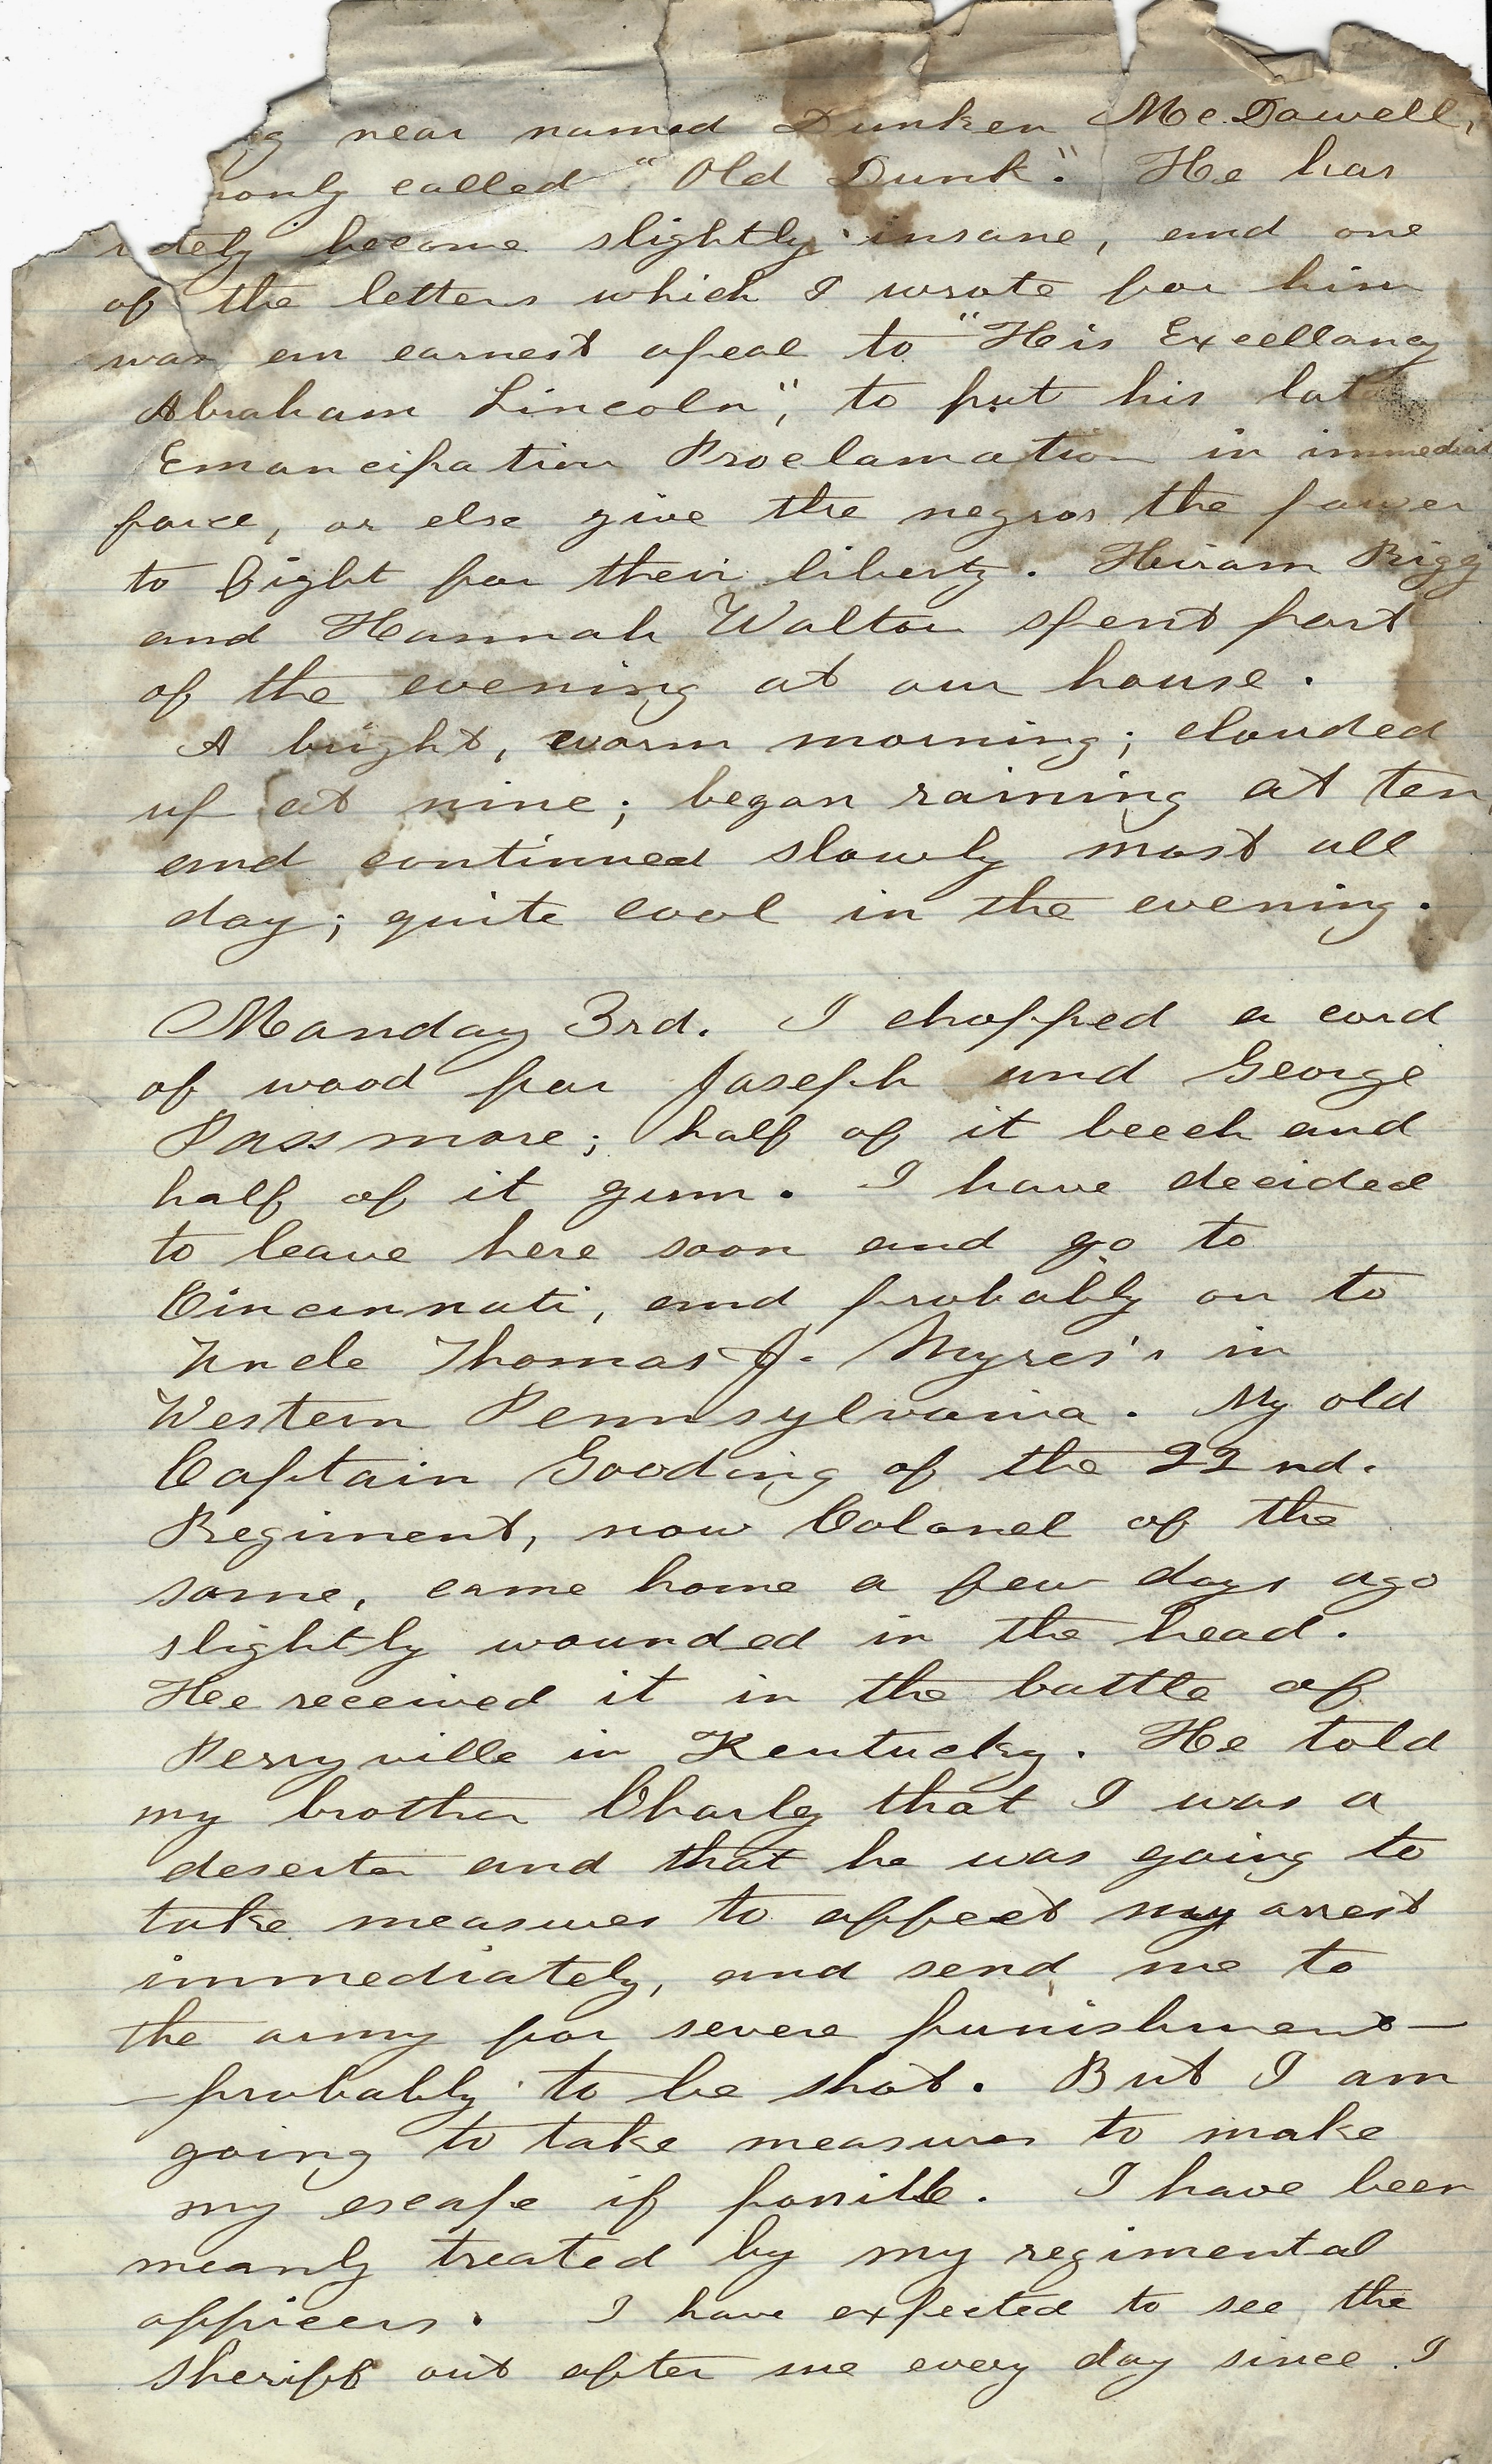 near named Dunken McDowell,
called "Old Dunk." He has
become slightly insane, and one
of the letters which I wrote for him
was an earnest apeal to "His Excellancy
Abraham Lincoln", to put his late
Emancipation Proclamation in immediat
force, or else give the negros the power
to fight for their liberty. Hiram Rigg
and Hannah Walton spent part
of the evening at our house.
A bright, warm morning; clouded
up at nine; began raining at ten,
and continued slowly most all
day; quite cool in the evening.
Monday 3rd. I chopped a cord
of wood for Joseph and George
Passmore; half of it beech and
half of it gum. I have decided
to leave here soon and go to
Cincinnati, and probably on to
Uncle Thomas J. Myres's in
Western Pennsylvania. My old
Captain Gooding of the 22nd.
Regiment, now Colonel of the
same, came home a few days ago
slightly wounded in the head.
He received it in the battle of
Perryville in Kentucky. He told
my brother Charly that I was a
deserter and that he was going to
take measures to effect my arrest
immediately, and send me to
the army for severe punishment—
—probably to be shot. But I am
going to take measures to make
my escape if possible. I have been
meanly treated by my regimental
officers. I have expected to see the
sheriff out after me every day since I